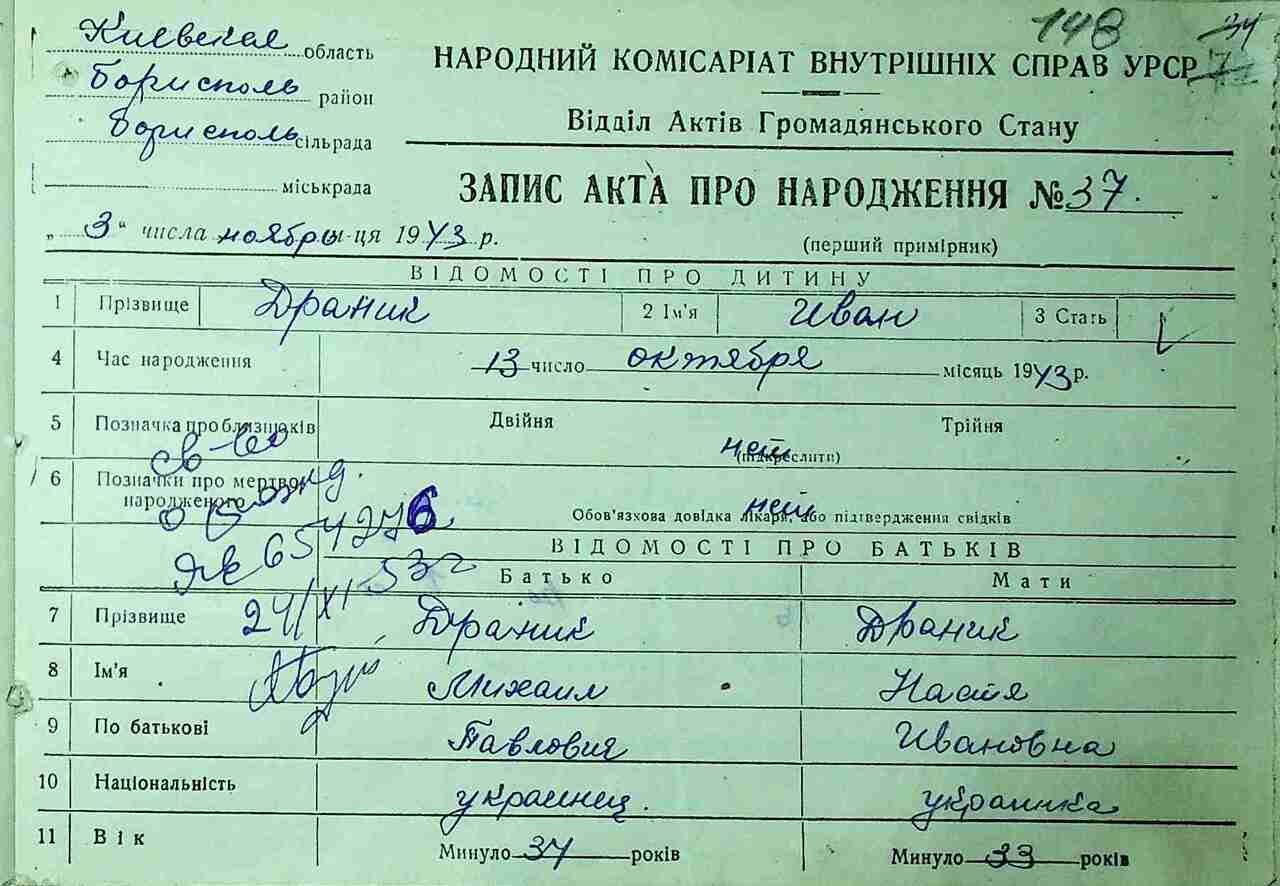 148 34
Киевская область
НАРОДНИЙ КОМІСАРІАТ ВНУТРІШНІХ СПРАВ УРСР 7
Борисполь район
Відділ Актів Громадянського Стану
Борисполь сільрада
міськрада
ЗАПИС АКТА ПРО НАРОДЖЕННЯ № 37.
„3“ числа ноябры-ця 1943 р.
(перший примірник)
ВІДОМОСТІ ПРО ДИТИНУ
1 Прізвище Драник 2 Ім'я Иван 3 Стать
4 Час народження 13 число октября місяць 1943 р.
5 Позначка про близнюків Двійня нет Трійня
(підкреслити)
св-во
6 Позначки про мертво-
народженого нет
Обов'язкова довідка лікаря, або підтвердження свідків
о рожд.
ЯК 654276
24/XI-53г
ВІДОМОСТІ ПРО БАТЬКІВ
Батько Мати
7 Прізвище Драник Драник
8 Ім'я Михаил Настя
9 По батькові Павлович Ивановна
10 Національність украинец. украинка
11 Вік Минуло 37 років Минуло 33 років